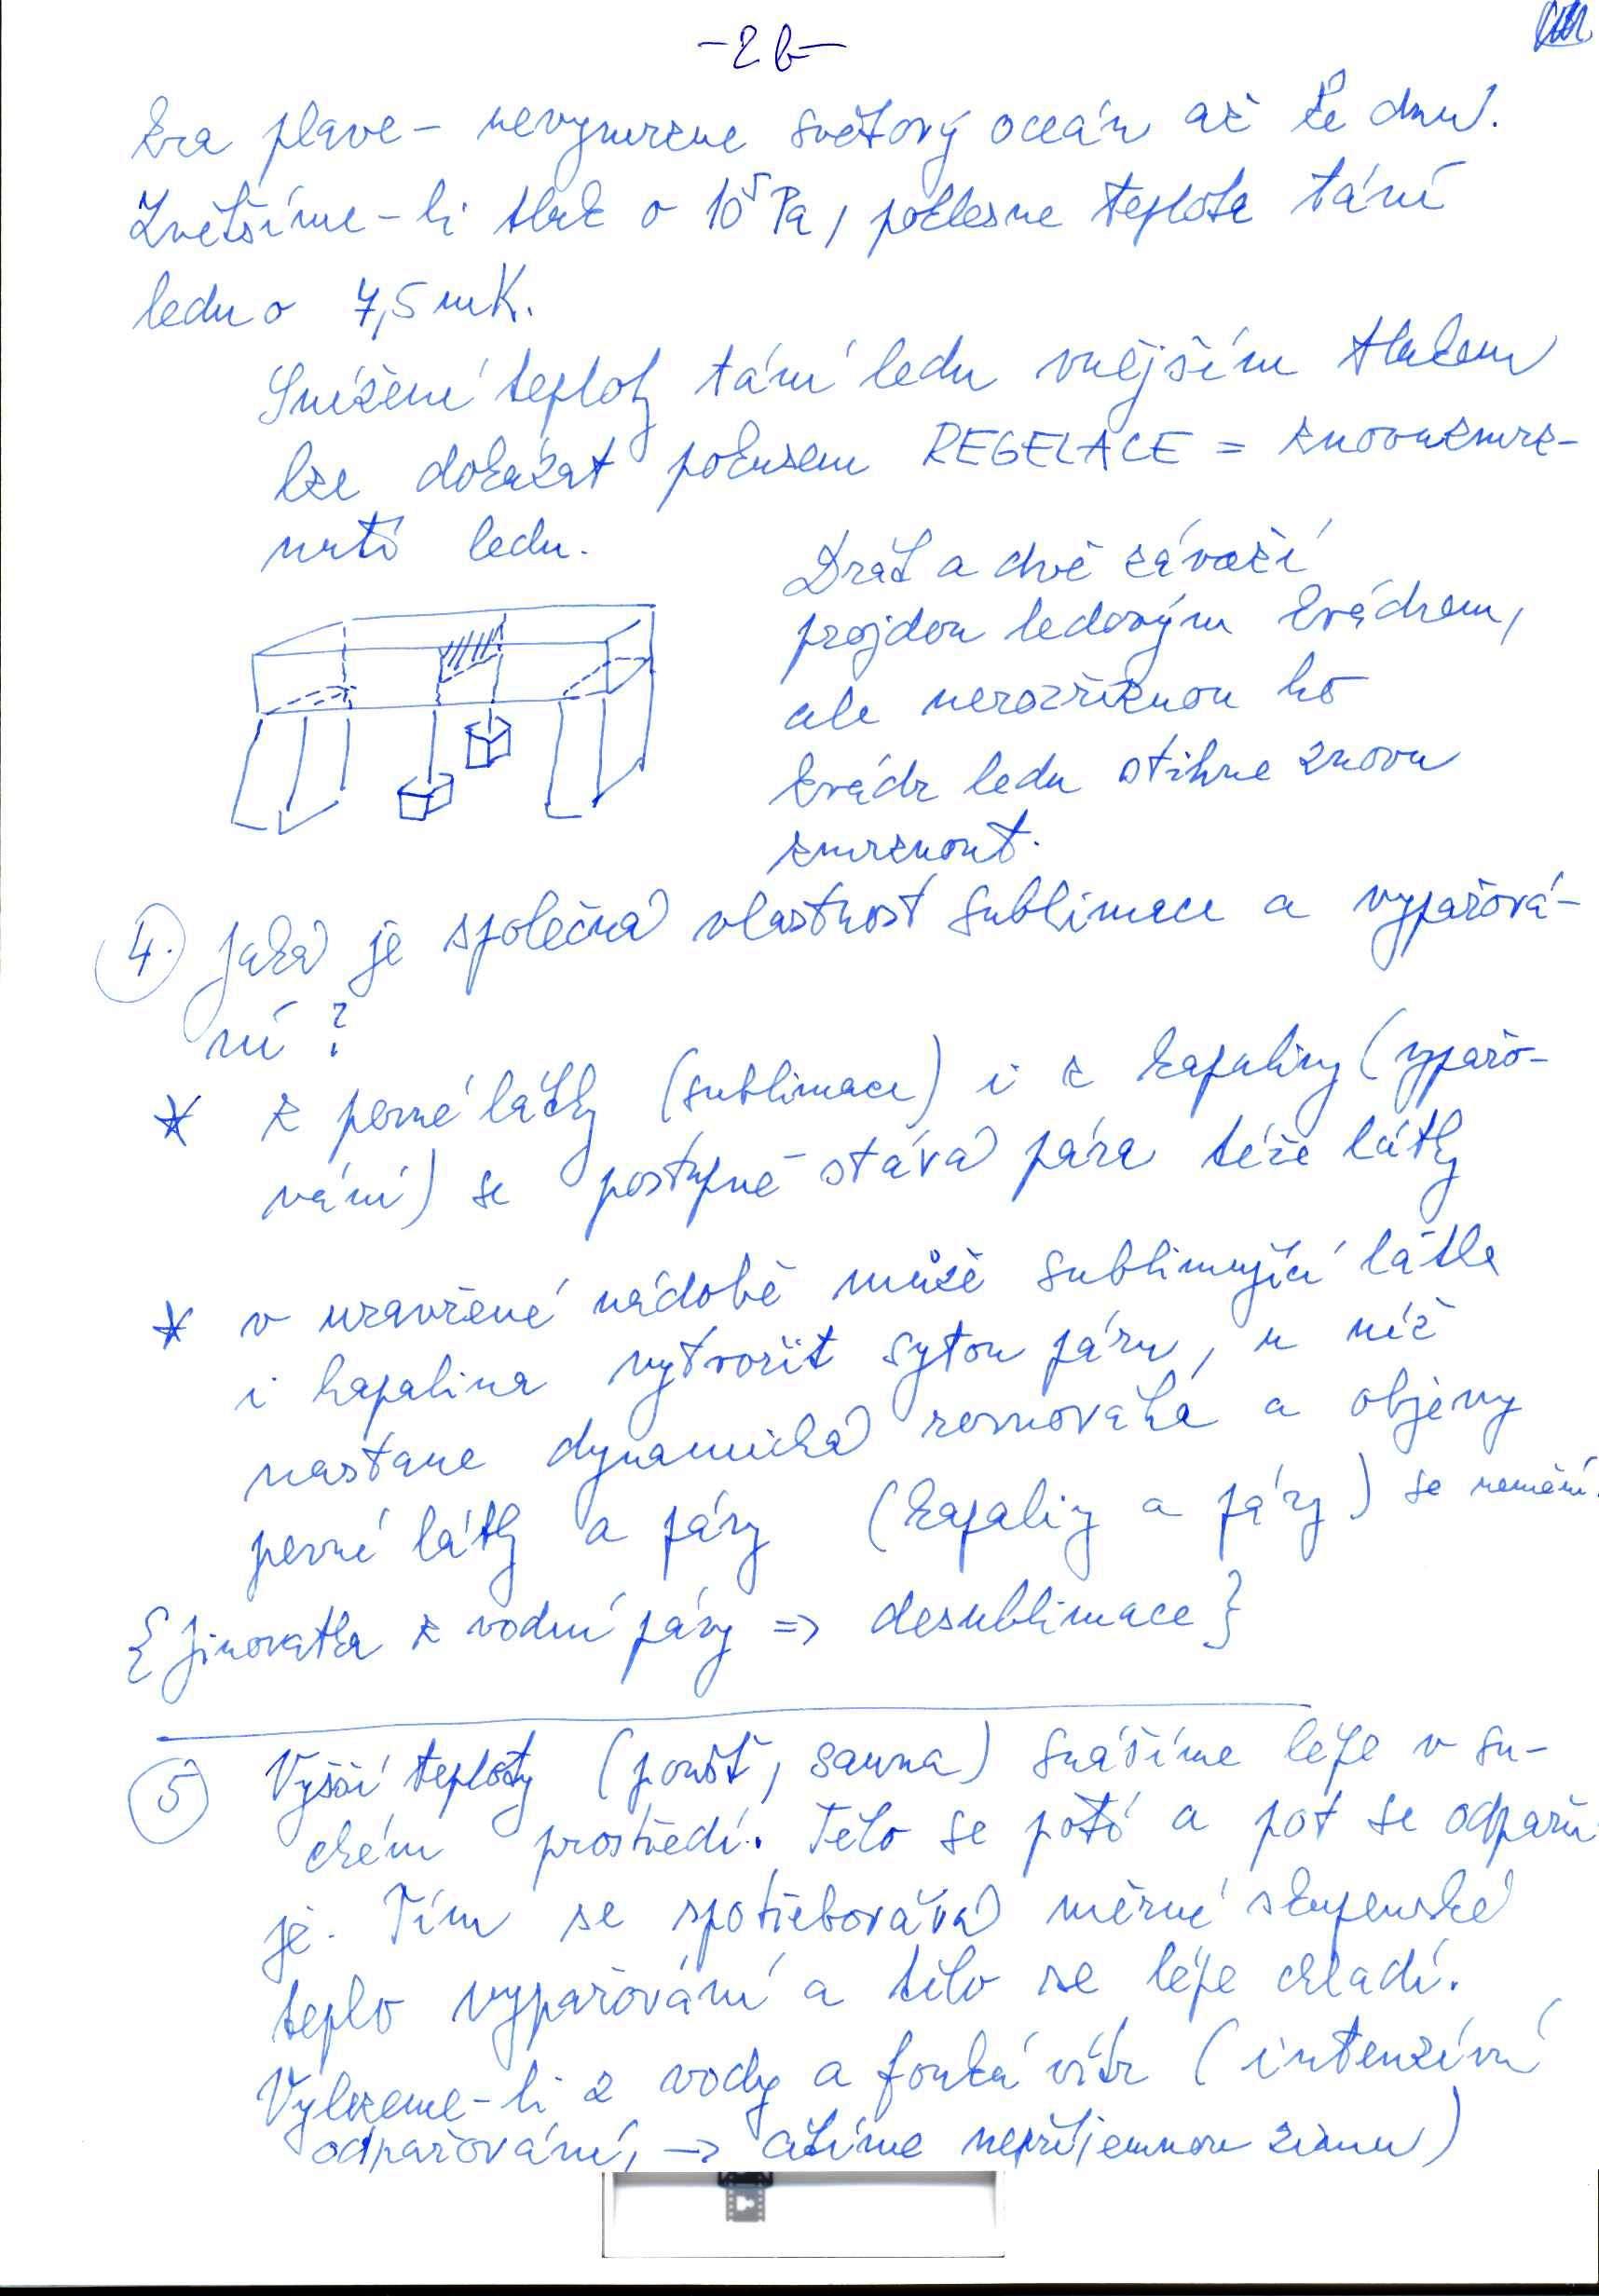 -2b-
kra plave - nevymrzne světový oceán až ke dnu.
Zvětšíme-li tlak o 10⁵ Pa, poklesne teplota tání
ledu o 7,5 mK.
Snížení teploty tání ledu vnějším tlakem
lze dokázat pokusem REGELACE = znovuzmrz-
nutí ledu.
Drát a dvě závaží
projdou ledovým kvádrem,
ale nerozříznou ho
kvádr ledu stihne znovu
zmrznout.
4. Jaká je společná vlastnost sublimace a vypařová-
ní ?
* z pevné látky (sublimace) i z kapaliny (vypařo-
vání) se postupně stává pára téže látky
* v uzavřené nádobě může sublimující látka
i kapalina vytvořit sytou páru, u níž
nastane dynamická rovnováha a objemy
pevné látky a páry (kapaliny a páry) se nemění.
{ jinovatka z vodní páry => desublimace }
5 Vyšší teploty (poušť, sauna) snášíme lépe v su-
chém prostředí. Tělo se potí a pot se odpařu-
je. Tím se spotřebovává měrné skupenské
teplo vypařování a tělo se lépe chladí.
Vylezeme-li z vody a fouká vítr (intenzívní
odpařování, -> cítíme nepříjemnou zimu)